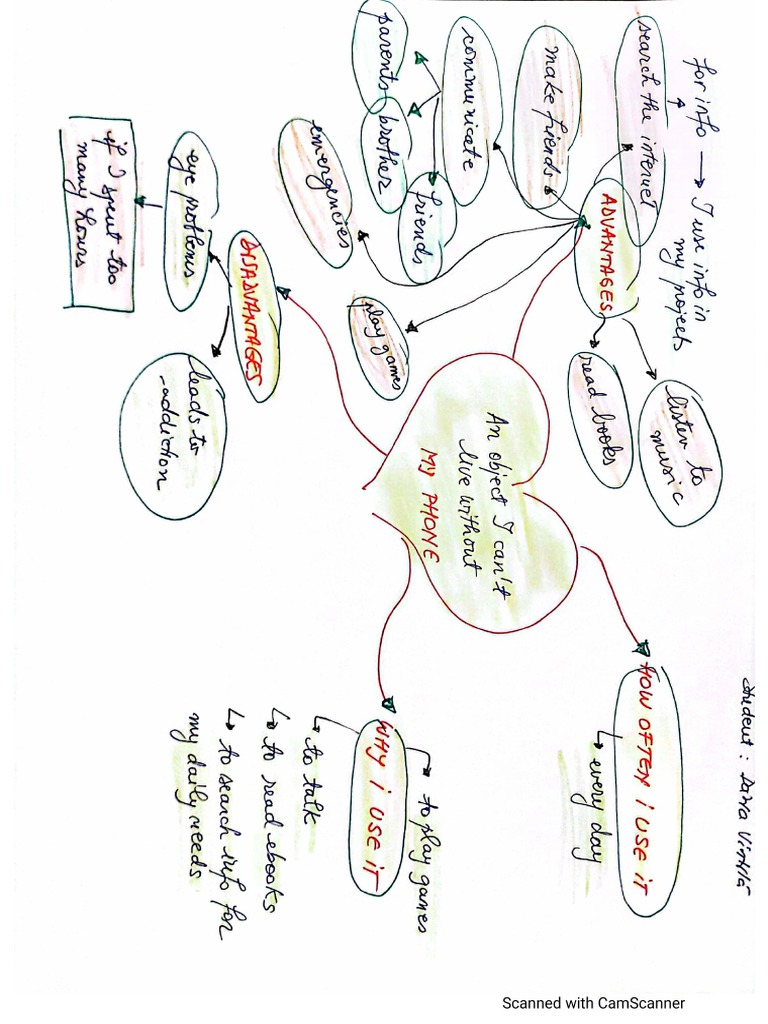 Student : Daria
for info → I use info in
my projects
search the internet
make friends
communicate
parents
brother
friends
emergencies
play games
ADVANTAGES
listen to
music
read books
DISADVANTAGES
eye problems
if I spent too
many hours
leads to
addiction
An object I can't
live without
MY PHONE
HOW OFTEN i USE iT
every day
WHY i USE iT
to play games
to talk
to read ebooks
to search info for
my daily needs.
Scanned with CamScanner